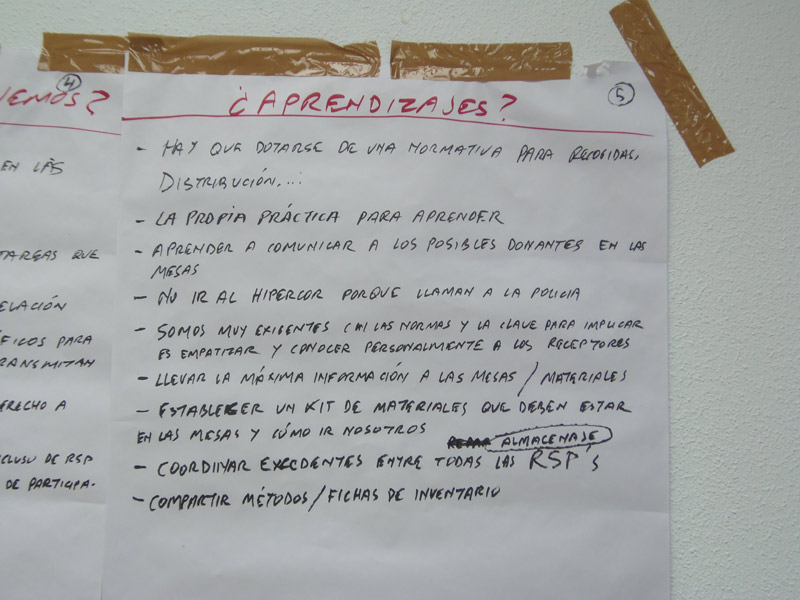 4
NEMOS?
EN LAS
TAREAS QUE
ELACIÓN
FICOS PARA
TRANSMITAN
ERECHO A
CLUSO DE RSP
DE PARTICIPA.
5
¿APRENDIZAJES?
- HAY QUE DOTARSE DE UNA NORMATIVA PARA RECOGIDAS,
DISTRIBUCIÓN...
- LA PROPIA PRÁCTICA PARA APRENDER
- APRENDER A COMUNICAR A LOS POSIBLES DONANTES EN LAS
MESAS
- NO IR AL HIPERCOR PORQUE LLAMAN A LA POLICIA
- SOMOS MUY EXIGENTES CON LAS NORMAS Y LA CLAVE PARA IMPLICAR
ES EMPATIZAR Y CONOCER PERSONALMENTE A LOS RECEPTORES
- LLEVAR LA MÁXIMA INFORMACIÓN A LAS MESAS / MATERIALES
- ESTABLECER UN KIT DE MATERIALES QUE DEBEN ESTAR
EN LAS MESAS Y CÓMO IR NOSOTROS
ALMACENAJE
- COORDINAR EXCEDENTES ENTRE TODAS LAS RSP'S
- COMPARTIR MÉTODOS / FICHAS DE INVENTARIO